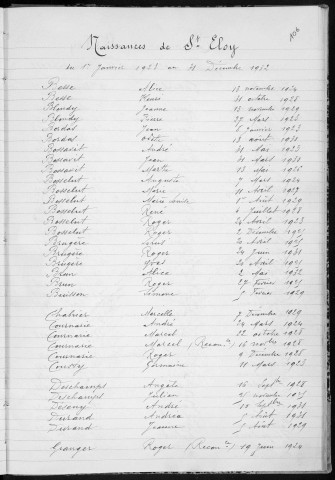 Naissances de St Eloy
du 1er Janvier 1923 au 31 Décembre 1932
Besse Aline 13 novembre 1924
Besse Henri 31 octobre 1928
Blondy Jeanne 13 novembre 1929
Blondy Pierre 27 Mars 1926
Bordas Jean 1 Janvier 1923
Bordas Odette 18 août 1930
Bossavit André 31 Mai 1923
Bossavit Jean 4 Mars 1931
Bossavit Marthe 13 Mai 1926
Bosselut Augusta 7 Mars 1924
Bosselut Marie 11 Avril 1927
Bosselut Marie Louise 1er Août 1929
Bosselut René 4 Juillet 1928
Bosselut Roger 24 Avril 1923
Bosselut Roger 2 Décembre 1925
Brugère Louis 20 Avril 1925
Brugère Roger 24 Juin 1931
Brugère Yves 20 Avril 1931
Brun Alice 2 Mai 1932
Brun Roger 27 Février 1925
Buisson Simone 5 Février 1929
Chabrier Marcelle 17 Décembre 1929
Cournarie André 24 Mars 1924
Cournarie Marcel 22 octobre 1928
Cournarie Marcel (Recon.ce) 16 novbre 1928
Cournarie Roger 9 Décembre 1928
Coussy Germaine 11 Mars 1923
Deschamps Angèle 16 Septbre 1928
Deschamps Julien 21 novembre 1925
Désony André 10 Septbre 1931
Durand Andrea 5 Août 1931
Durand Jeanne 5 Août 1929
Granger Roger (Recon.ce) 19 Juin 1924